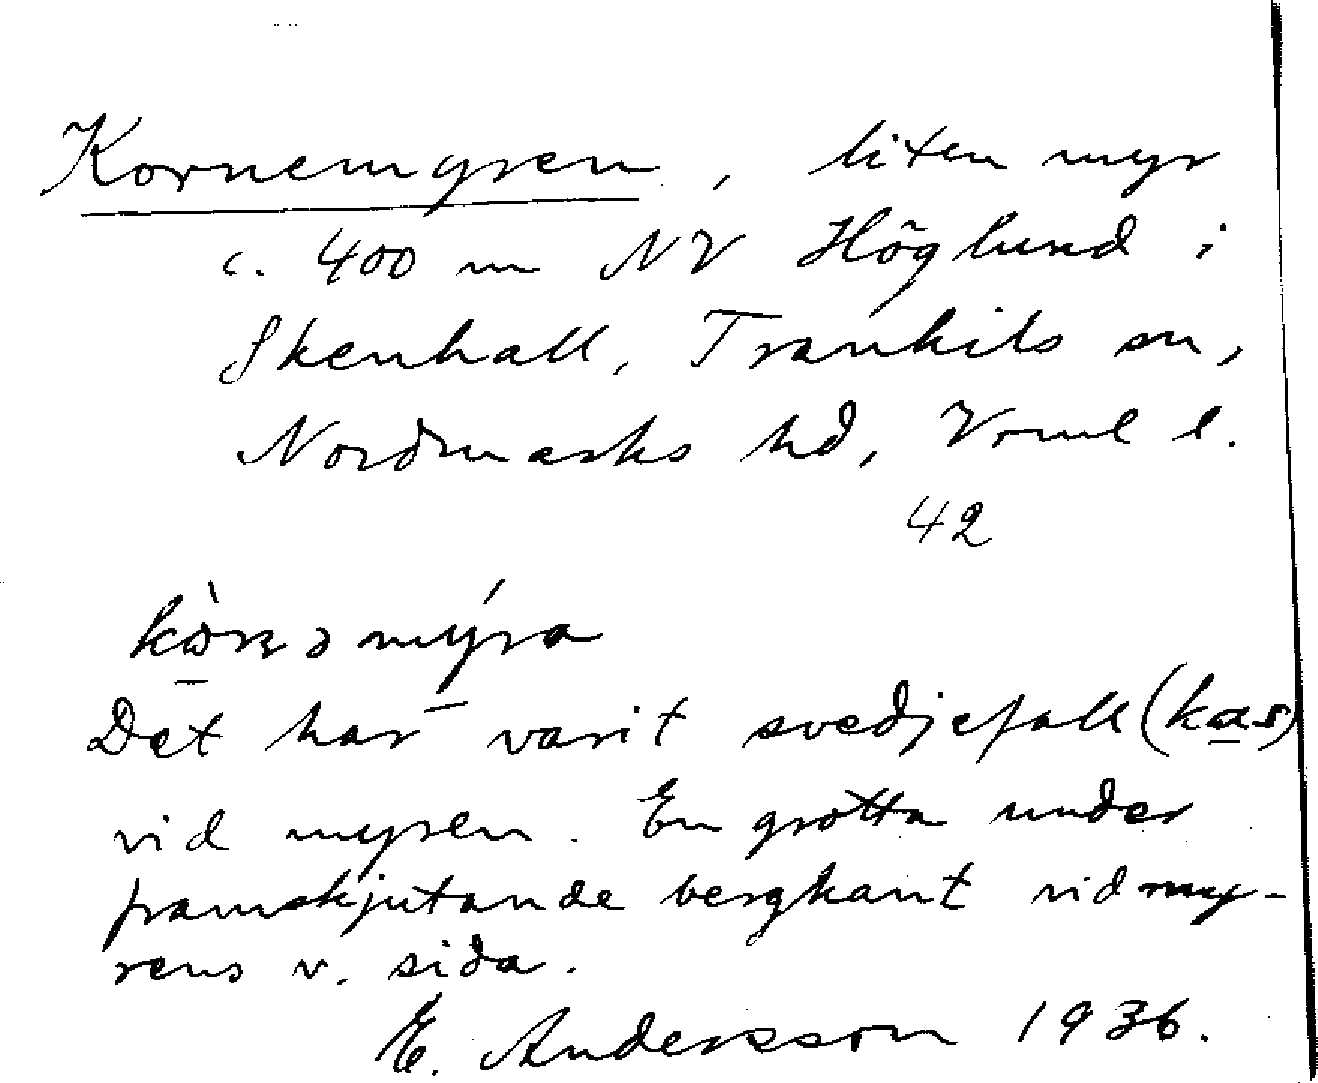 Kornemyren, liten myr
c. 400 m NV Höglund i
Skenhall, Trankils sn,
Nordmarks hd, Vrml l.
42
mýra
Det har varit svedjefall (kas)
vid myren. En grotta under
framskjutande bergkant vid my-
rens v. sida.
E. Andersson 1936.